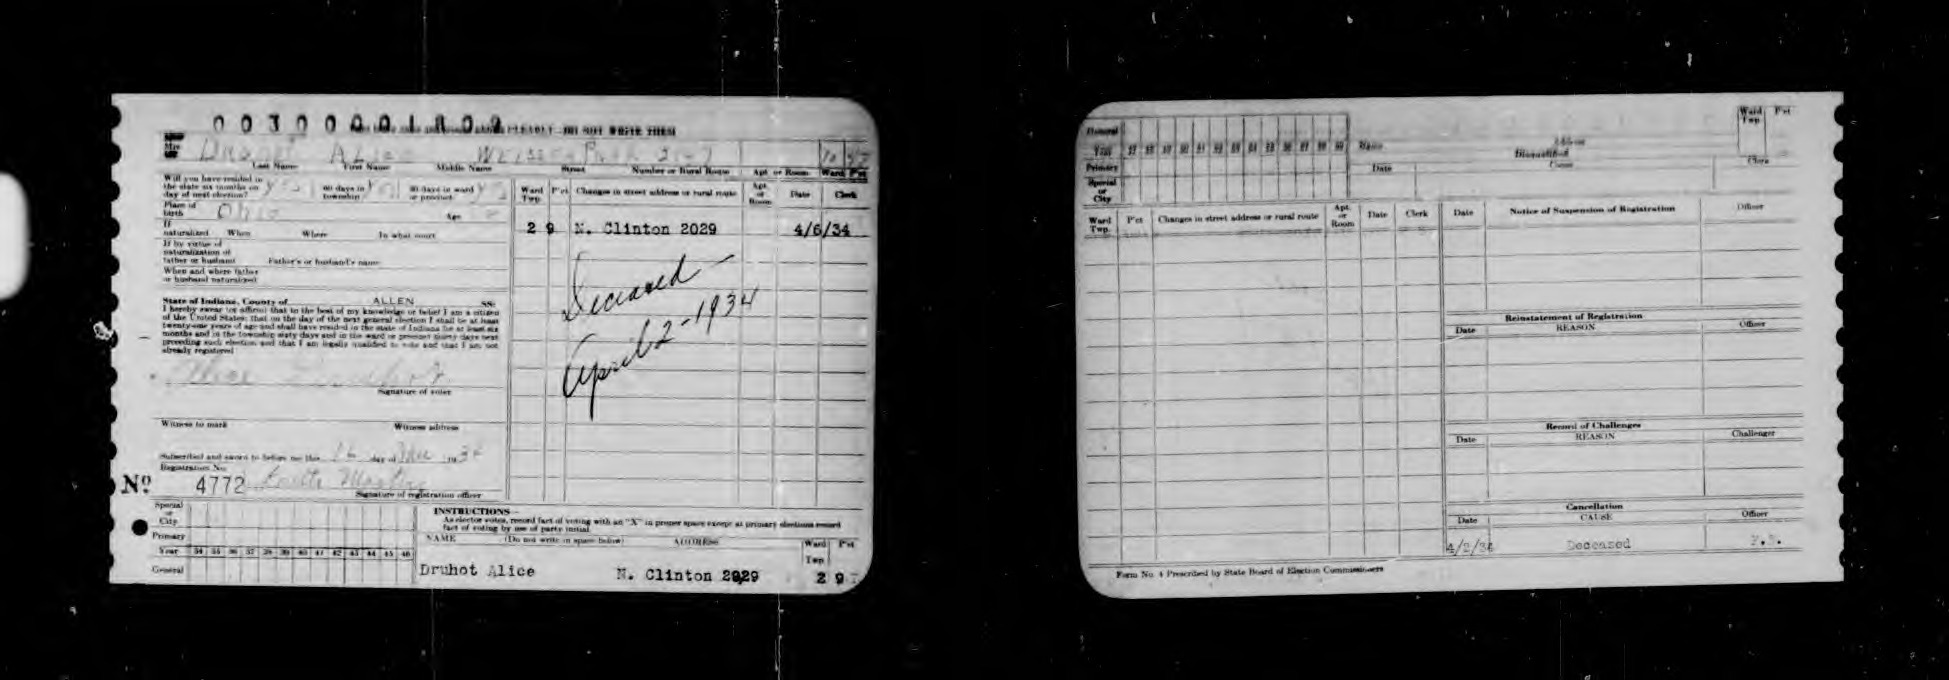 PLEASE PRINT—DO NOT WRITE THEM
Mrs Druhot Alice
Last Name First Name Middle Name Street Number or Rural Route Apt. or Room Ward P'ct
Will you have resided in
the state six months on 60 days in 30 days in ward
day of next election? township or precinct
Place of
birth Ohio Age
If
naturalized When Where In what court
If by virtue of
naturalization of
father or husband Father's or husband's name
When and where father
or husband naturalized
State of Indiana, County of ALLEN SS:
I hereby swear (or affirm) that to the best of my knowledge or belief I am a citizen
of the United States; that on the day of the next general election I shall be at least
twenty-one years of age and shall have resided in the state of Indiana for at least six
months and in the township sixty days and in the ward or precinct thirty days next
preceding such election and that I am legally qualified to vote and that I am not
already registered
Signature of voter
Witness to mark Witness address
Subscribed and sworn to before me this 16 day of 19 34
Registration No.
Nº 4772
Signature of registration officer
Ward Twp. P'ct Changes in street address or rural route Apt. or Room Date Clerk
2 9 N. Clinton 2029 4/6/34
Deceased
April 2-1934
Special
or
City
Primary
Year 34 35 36 37 38 39 40 41 42 43 44 45 46
General
INSTRUCTIONS—
As elector votes, record fact of voting with an "X" in proper space except at primary elections record
fact of voting by use of party initial.
NAME (Do not write in space below) ADDRESS Ward Twp P'ct
Druhot Alice N. Clinton 2029 2 9
General
Year 47 48 49 50 51 52 53 54 55 56 57 58 59
Primary
Special
or
City
Name
Disqualified
Date Cause Clerk
Ward Twp. P'ct
Ward Twp. P'ct Changes in street address or rural route Apt. or Room Date Clerk
Date Notice of Suspension of Registration Officer
Reinstatement of Registration
Date REASON Officer
Record of Challenges
Date REASON Challenger
Cancellation
Date CAUSE Officer
4/2/34 Deceased
Form No. 4 Prescribed by State Board of Election Commissioners